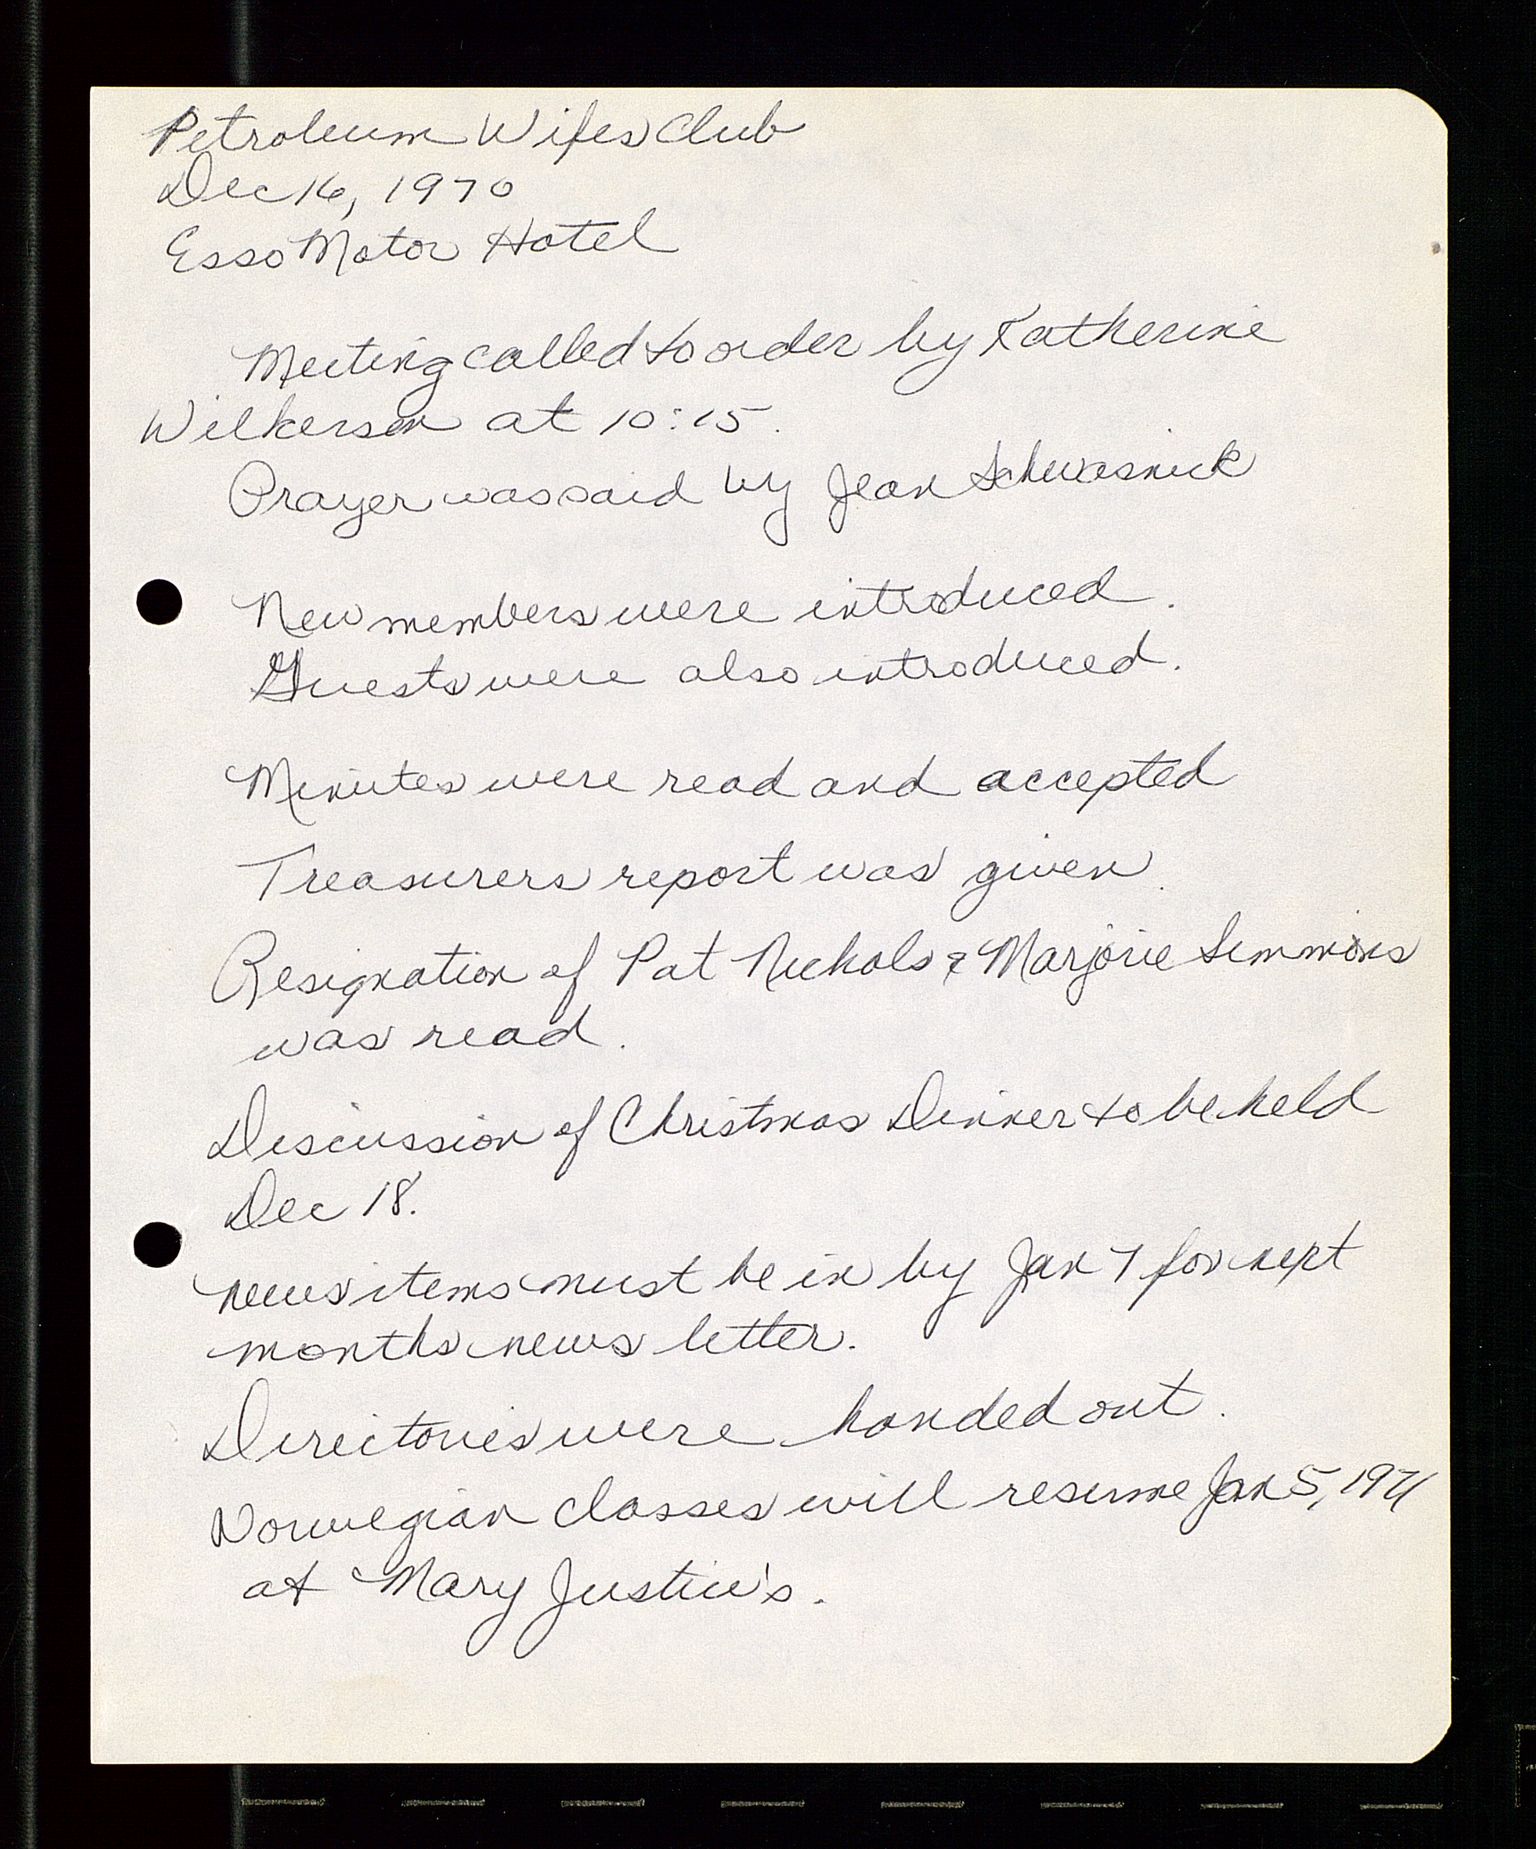 Petroleum Wifes Club
Dec 16, 1970
Esso Motor Hotel
Meeting called to order by Katherine
Wilkerson at 10:15.
Prayer was said by Jean Schwasnick
New members were introduced.
Guests were also introduced.
Minutes were read and accepted
Treasurers report was given.
Resignation of Pat Nichols & Marjorie Simmons
was read.
Discussion of Christmas Dinner to be held
Dec 18.
News items must be in by Jan 7 for next
months news letter.
Directories were handed out.
Norwegian classes will resume Jan 5, 1971
at Mary Justice's.